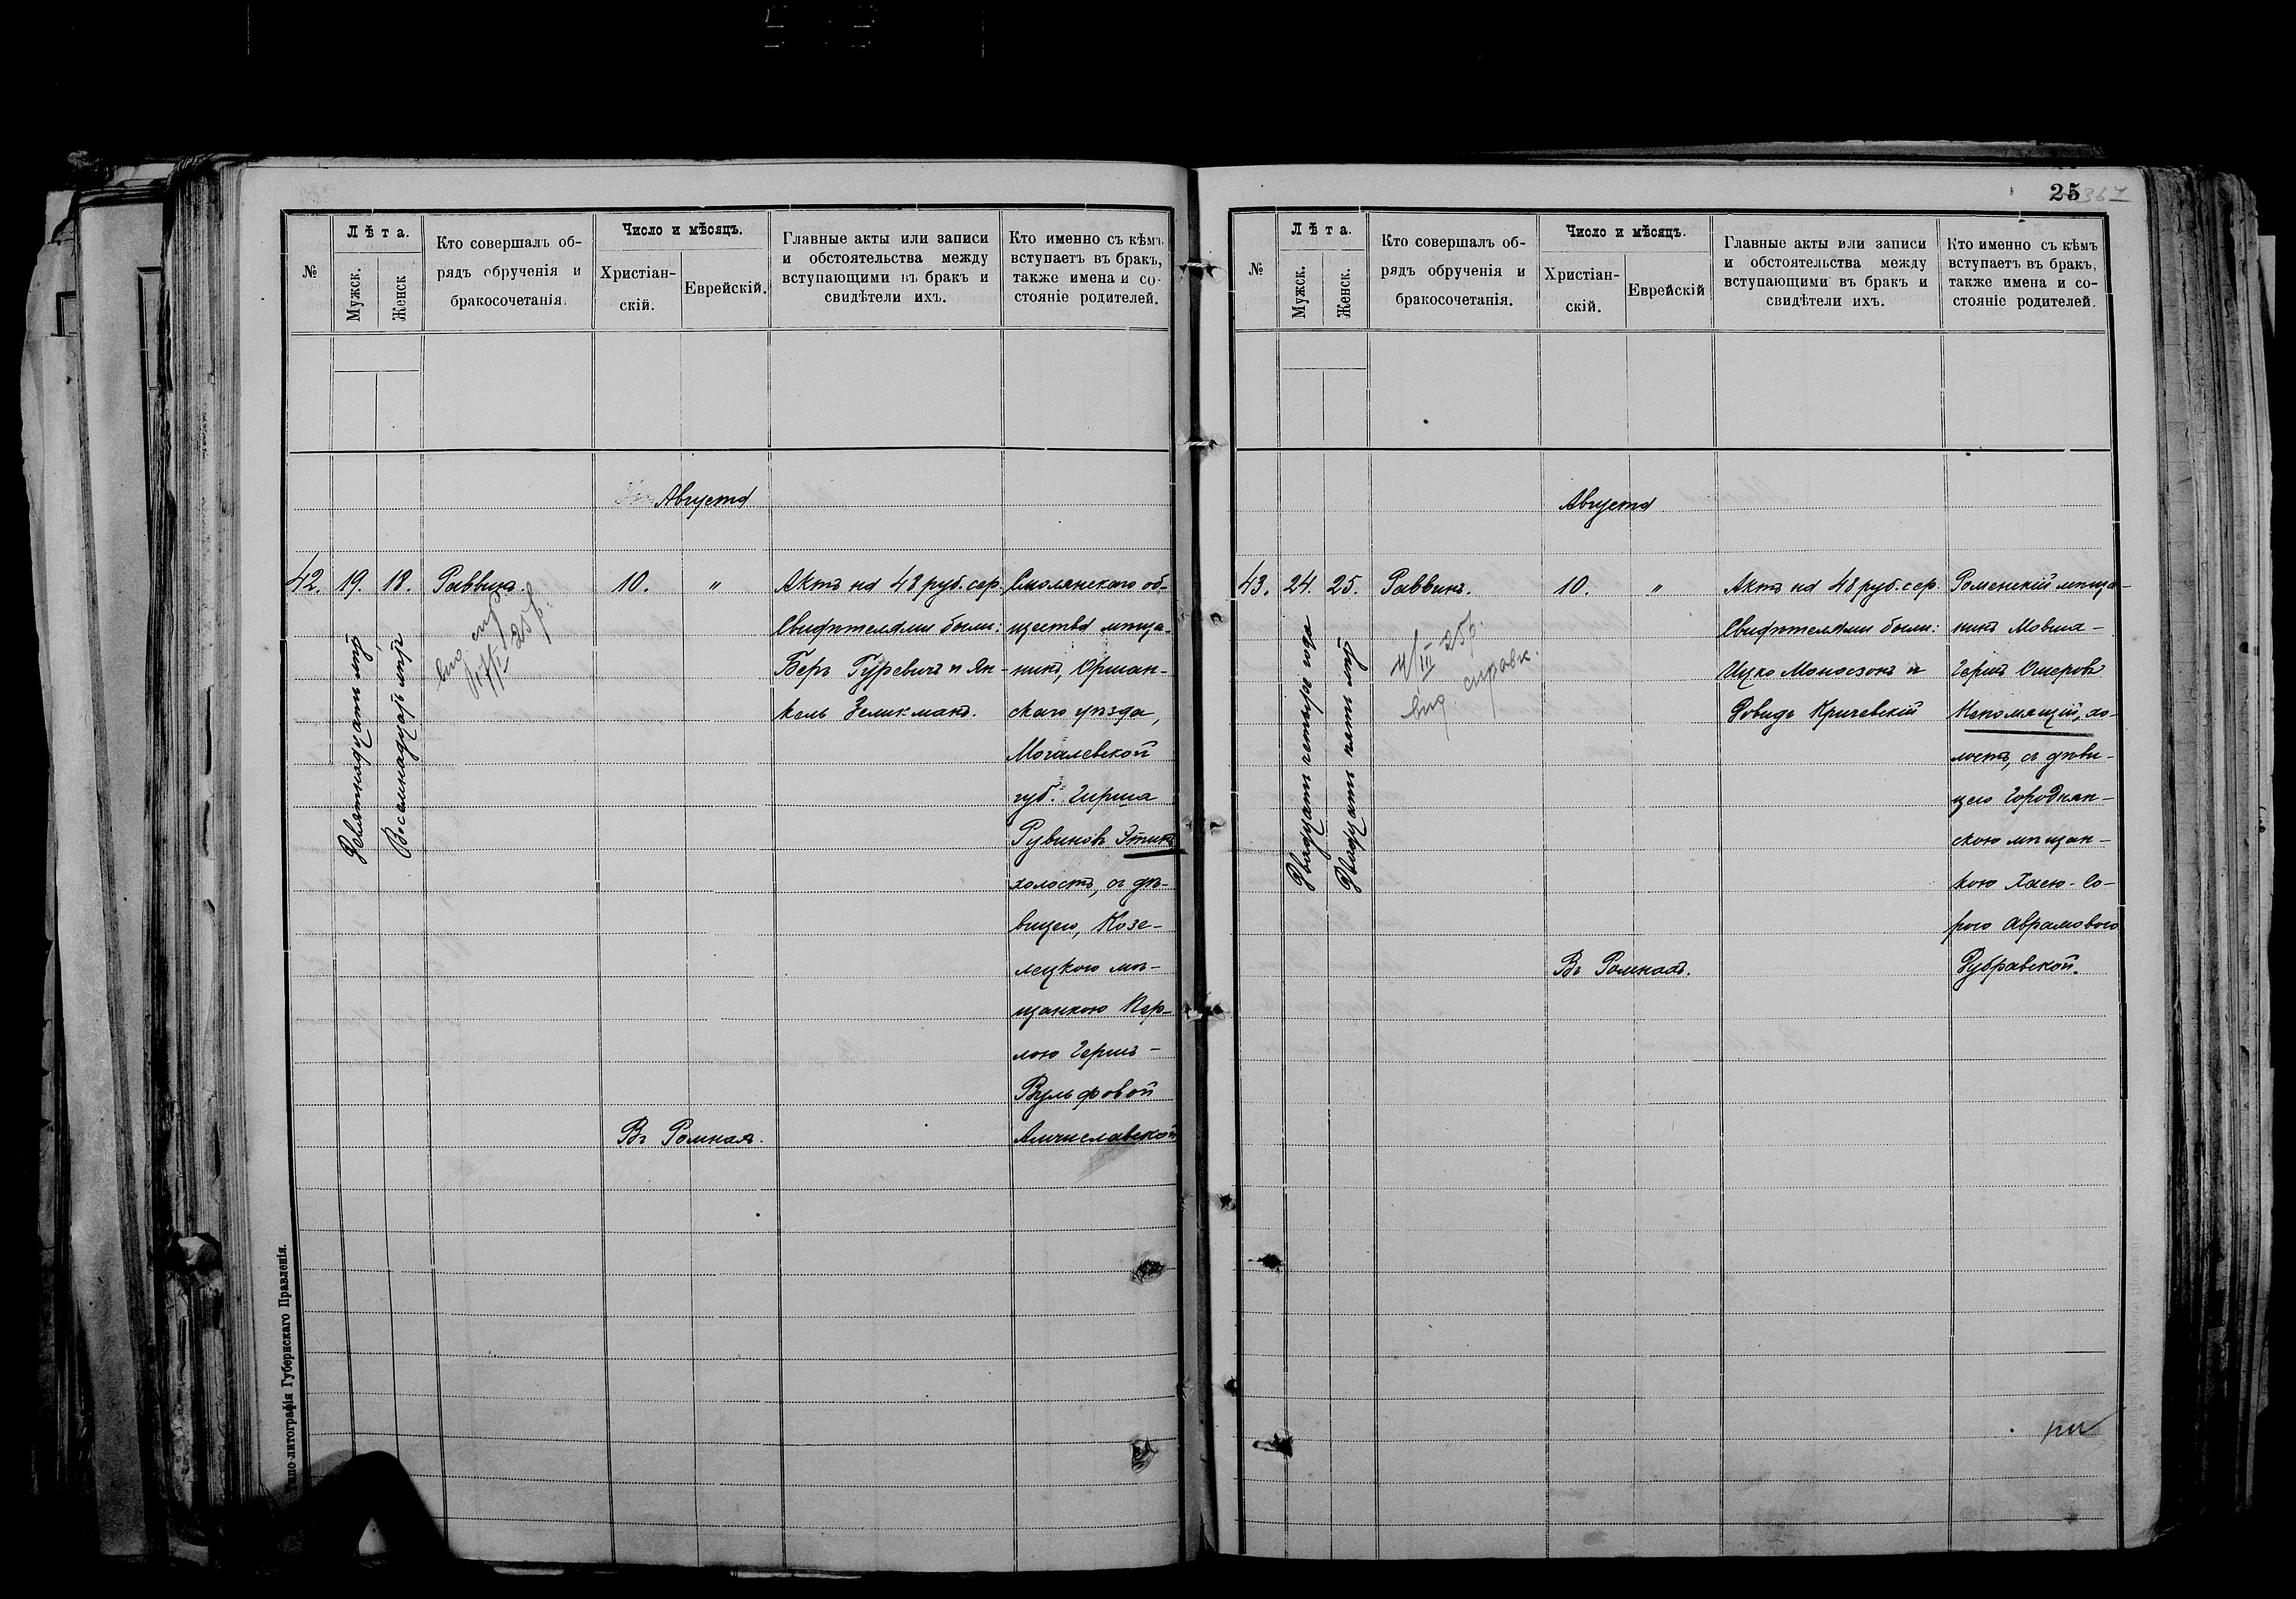 №
Лѣта.
Мужск.
Женск.
Кто совершалъ об-
рядъ обрученія и
бракосочетанія.
Число и мѣсяцъ.
Христіан-
скій.
Еврейскій.
Главные акты или записи
и обстоятельства между
вступающими въ бракъ и
свидѣтели ихъ.
Кто именно съ кѣмъ
вступаетъ въ бракъ,
также имена и со-
стояніе родителей.
Августа
42.
19.
Девятнадцати лѣтъ
18.
Восемнадцать лѣтъ
Раввинъ.
25 г.
10.
"
Въ Ромнах.
Актъ на 48 руб. сер.
Свидѣтелями были:
Беръ Гуревичъ и Ян-
кель Зеликманъ.
Смолянскаго об-
щества мѣща-
нинъ, Оршан-
скаго уѣзда,
Могилевской
губ. Гирша
Рувиновъ Этинъ
холостъ, съ дѣ-
вицею, Козе-
лецкою мѣ-
щанкою Пер-
лою Герша-
Вульфовой
Амчиславской
Типо-литографія Губернскаго Правленія.
25
№
Лѣта.
Мужск.
Женск.
Кто совершалъ об-
рядъ обрученія и
бракосочетанія.
Число и мѣсяцъ.
Христіан-
скій.
Еврейскій
Главные акты или записи
и обстоятельства между
вступающими въ бракъ и
свидѣтели ихъ.
Кто именно съ кѣмъ
вступаетъ въ бракъ,
также имена и со-
стояніе родителей.
Августа
43.
24.
Двадцати четыре года
25.
Двадцати пяти лѣтъ
Раввинъ.
4/III 25 г.
вид справк.
10.
"
Въ Ромнахъ.
Актъ на 48 руб. сер.
Свидѣтелями были:
Ицко Моносзонъ и
Довидъ Кричевскій
Роменскій мѣща-
нинъ Мовша-
Гершъ Омеровъ
Непомящій, хо-
лостъ, съ дѣви-
цею Городнян-
скою мѣщан-
кою Хаею-Со-
рою Абрамовою
Дубравской.